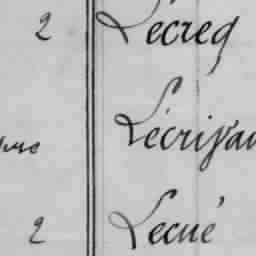 2 Lécreq
Lécrivai
2 Lecué